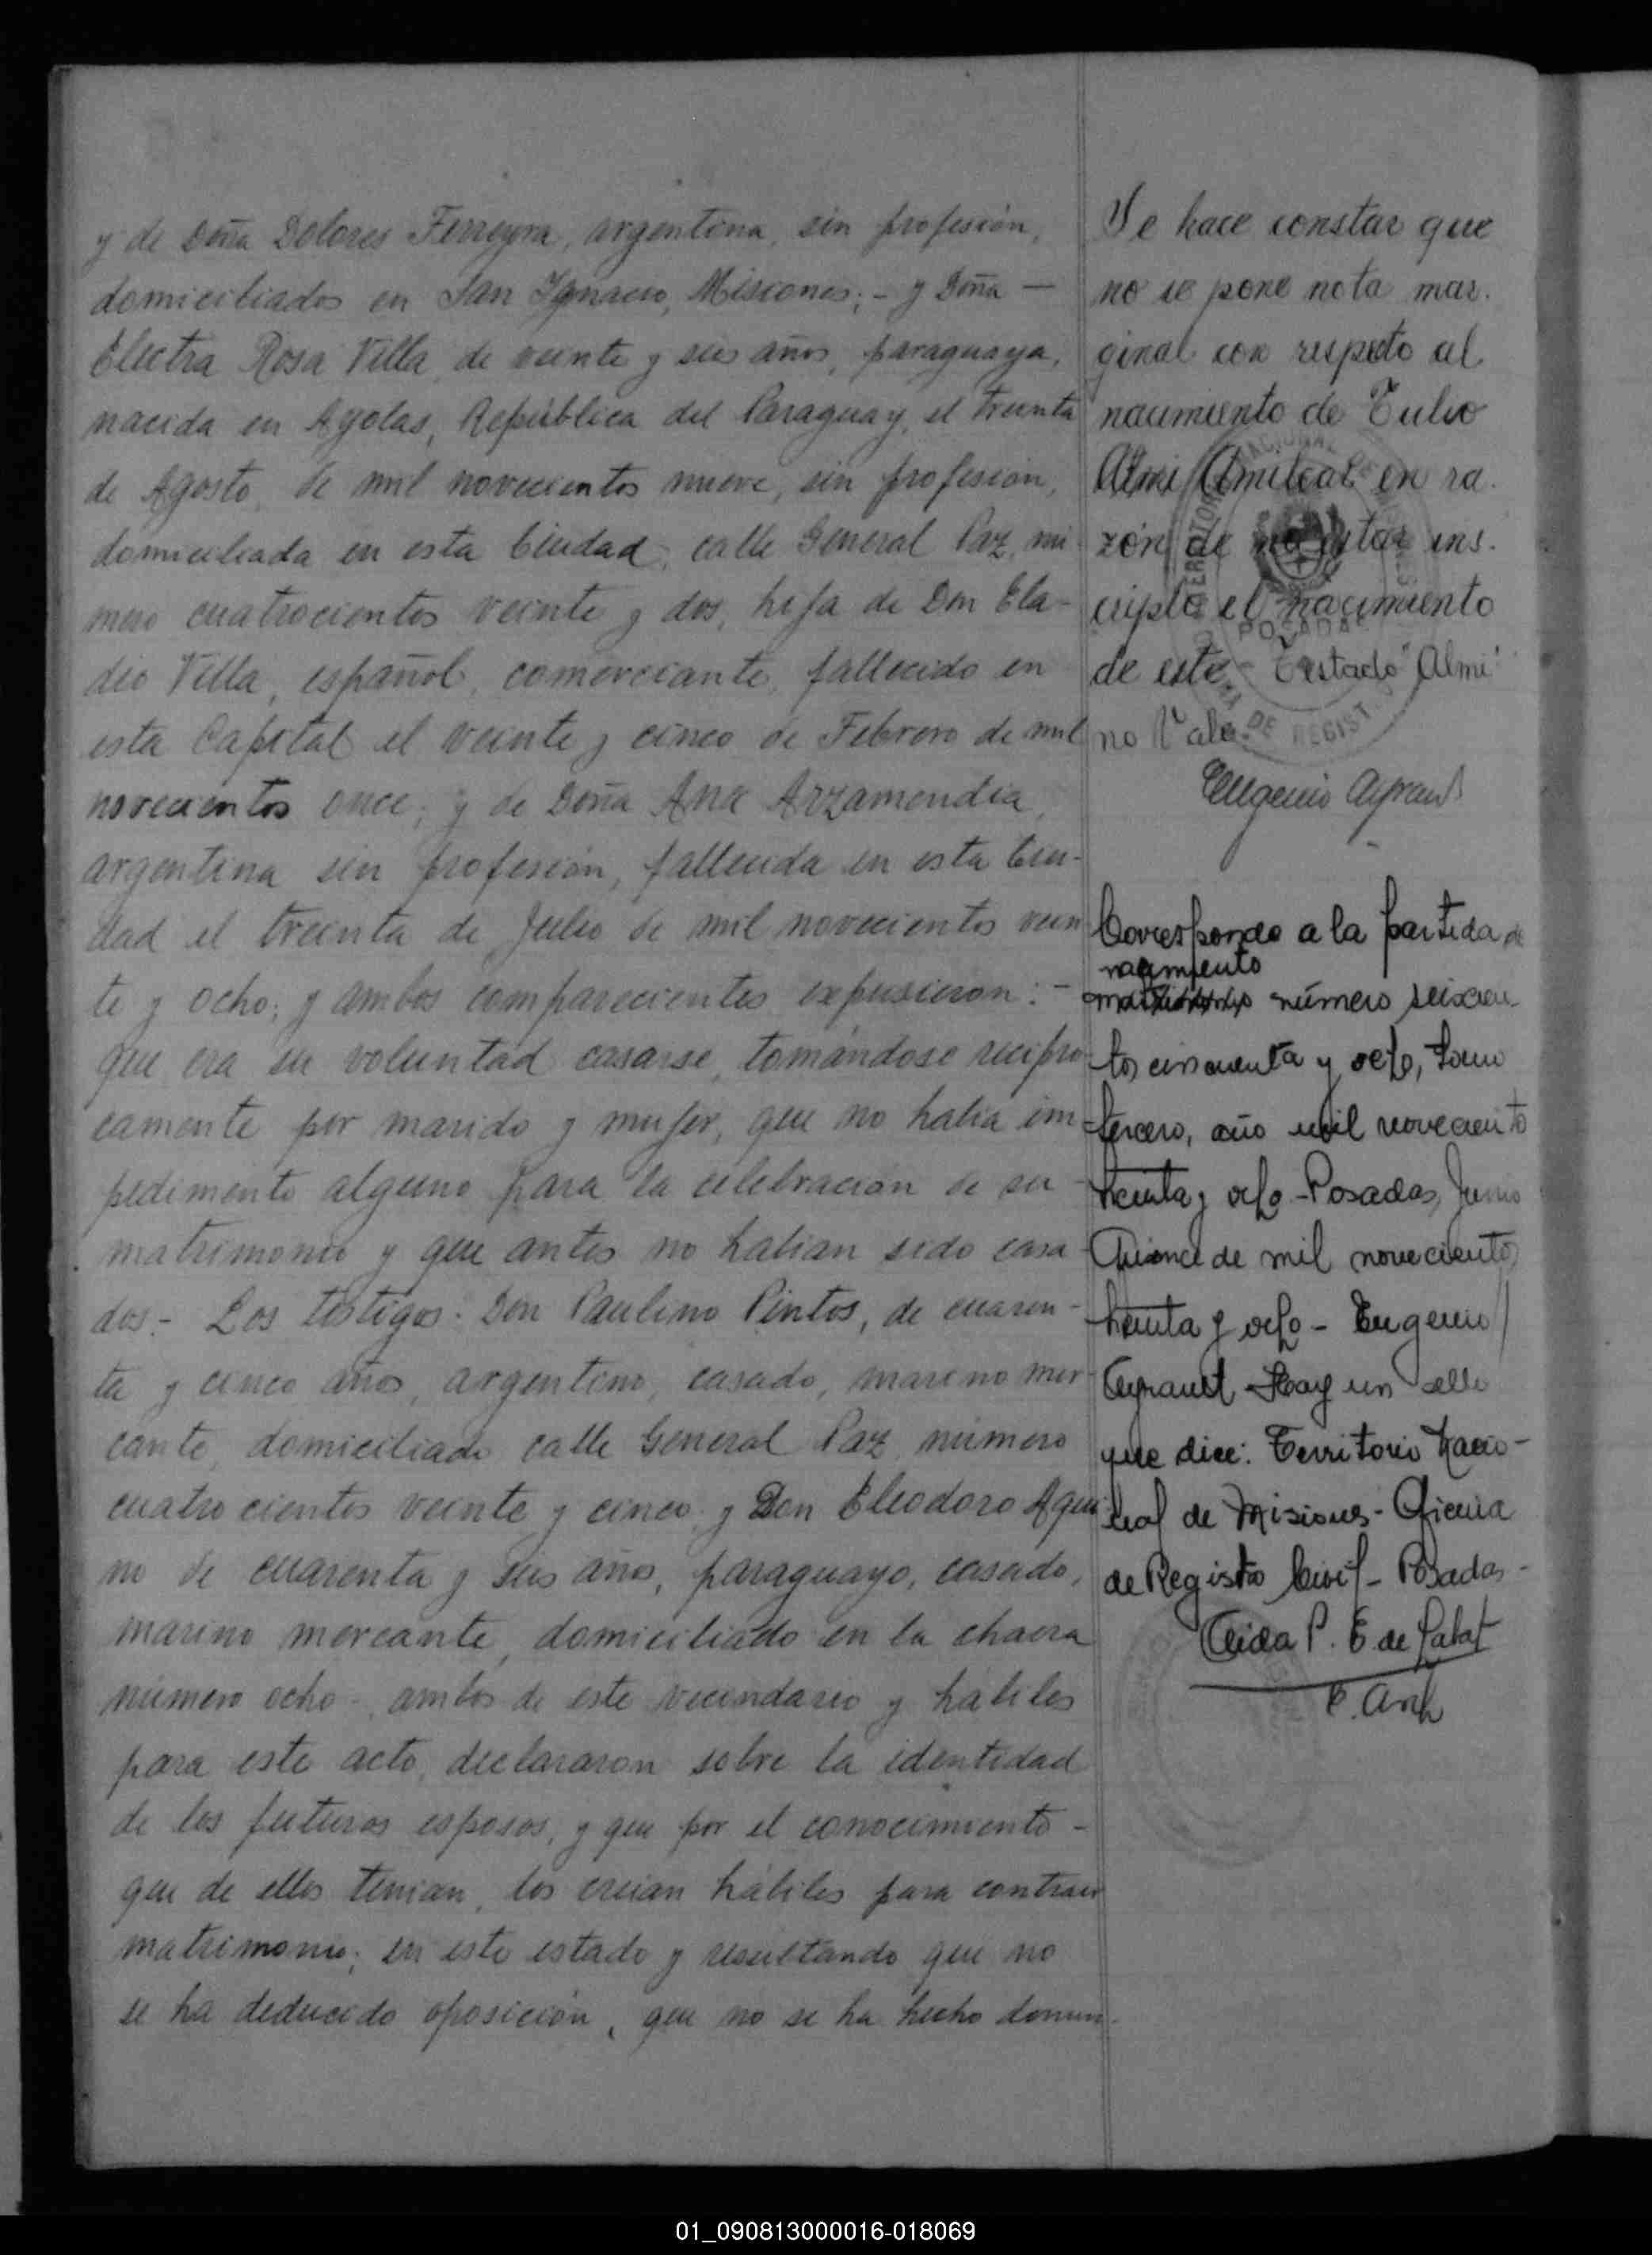 y de Doña Dolores Ferreyra, argentina, sin profesión,
domiciliados en San Ignacio, Misiones; - y Doña -
Electra Rosa Villa, de veinte y seis años, paraguaya,
nacida en Ayolas, República del Paraguay, el treinta
de Agosto, de mil novecientos nueve, sin profesión,
domiciliada en esta Ciudad, calle General Paz, nú-
mero cuatrocientos veinte y dos, hija de Don Ela-
dio Villa, español, comerciante, fallecido en
esta Capital el veinte y cinco de Febrero de mil
novecientos once, y de Doña Ana Arzamendia,
argentina sin profesión, fallecida en esta Ciu-
dad el treinta de Julio de mil novecientos vein
te y ocho; y ambos comparecientes expusieron: -
que era su voluntad casarse, tomándose recípro
camente por marido y mujer, que no había im
pedimento alguno para la celebración de su
matrimonio y que antes no habían sido casa
dos.- Los testigos: Don Paulino Pintos, de cuaren-
ta y cinco años, argentino, casado, marino mer
cante, domiciliado calle General Paz, número
cuatrocientos veinte y cinco, y Don Eleodoro Aqui
no de cuarenta y seis años, paraguayo, casado,
marino mercante, domiciliado en la chacra
número ocho -, ambos de este vecindario y hábiles
para este acto, declararon sobre la identidad
de los futuros esposos, y que por el conocimiento -
que de ellos tenían, los creían hábiles para contraer
matrimonio; en este estado y resultando que no
se ha deducido oposición, que no se ha hecho denun-
Se hace constar que
no se pone nota mar-
ginal con respecto al
nacimiento de Tulio
Almi Amilcar en ra-
zón de no estar ins-
cripto el nacimiento
de este - Testado "Almi"
no Vale.
Eugenio Ayrault
Corresponde a la partida de
nacimiento
matrimonio número seiscien-
tos cincuenta y ocho, tomo
tercero, año mil novecientos
treinta y ocho - Posadas, Junio
quince de mil novecientos
treinta y ocho - Eugenio
Ayrault - Hay un sello
que dice: Territorio Nacio-
nal de Misiones - Oficina
de Registro Civil - Posadas -
POSADAS
01_090813000016-018069